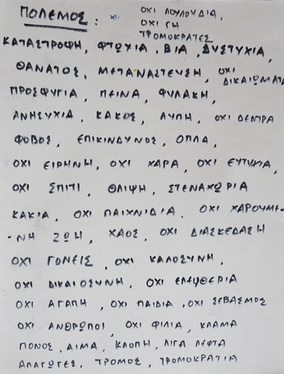 ΠΟΛΕΜΟΣ: ΟΧΙ ΛΟΥΛΟΥΔΙΑ,
ΟΧΙ ΓΗ
ΤΡΟΜΟΚΡΑΤΕΣ
ΚΑΤΑΣΤΡΟΦΗ, ΦΤΩΧΙΑ, ΒΙΑ, ΔΥΣΤΥΧΙΑ,
ΘΑΝΑΤΟΣ, ΜΕΤΑΝΑΣΤΕΥΣΗ, ΟΧΙ ΔΙΚΑΙΩΜΑΤΑ
ΠΡΟΣΦΥΓΙΑ, ΠΕΙΝΑ, ΦΥΛΑΚΗ,
ΑΝΗΣΥΧΙΑ, ΚΑΚΟΣ, ΛΥΠΗ, ΟΧΙ ΔΕΝΤΡΑ
ΦΟΒΟΣ, ΕΠΙΚΙΝΔΥΝΟΣ, ΟΠΛΑ,
ΟΧΙ ΕΙΡΗΝΗ, ΟΧΙ ΧΑΡΑ, ΟΧΙ ΕΥΤΥΧΙΑ,
ΟΧΙ ΣΠΙΤΙ, ΘΛΙΨΗ, ΣΤΕΝΑΧΩΡΙΑ
ΚΑΚΙΑ, ΟΧΙ ΠΑΙΧΝΙΔΙΑ, ΟΧΙ ΧΑΡΟΥΜΕ-
-ΝΗ ΖΩΗ, ΧΑΟΣ, ΟΧΙ ΔΙΑΣΚΕΔΑΣΗ
ΟΧΙ ΓΟΝΕΙΣ, ΟΧΙ ΚΑΛΟΣΥΝΗ,
ΟΧΙ ΔΙΚΑΙΟΣΥΝΗ, ΟΧΙ ΕΛΕΥΘΕΡΙΑ
ΟΧΙ ΑΓΑΠΗ, ΟΧΙ ΠΑΙΔΙΑ, ΟΧΙ ΣΕΒΑΣΜΟΣ
ΟΧΙ ΑΝΘΡΩΠΟΙ, ΟΧΙ ΦΙΛΙΑ, ΚΛΑΜΑ
ΠΟΝΟΣ, ΑΙΜΑ, ΚΛΟΠΗ, ΛΙΓΑ ΛΕΦΤΑ
ΑΠΑΓΩΓΕΣ, ΤΡΟΜΟΣ, ΤΡΟΜΟΚΡΑΤΙΑ